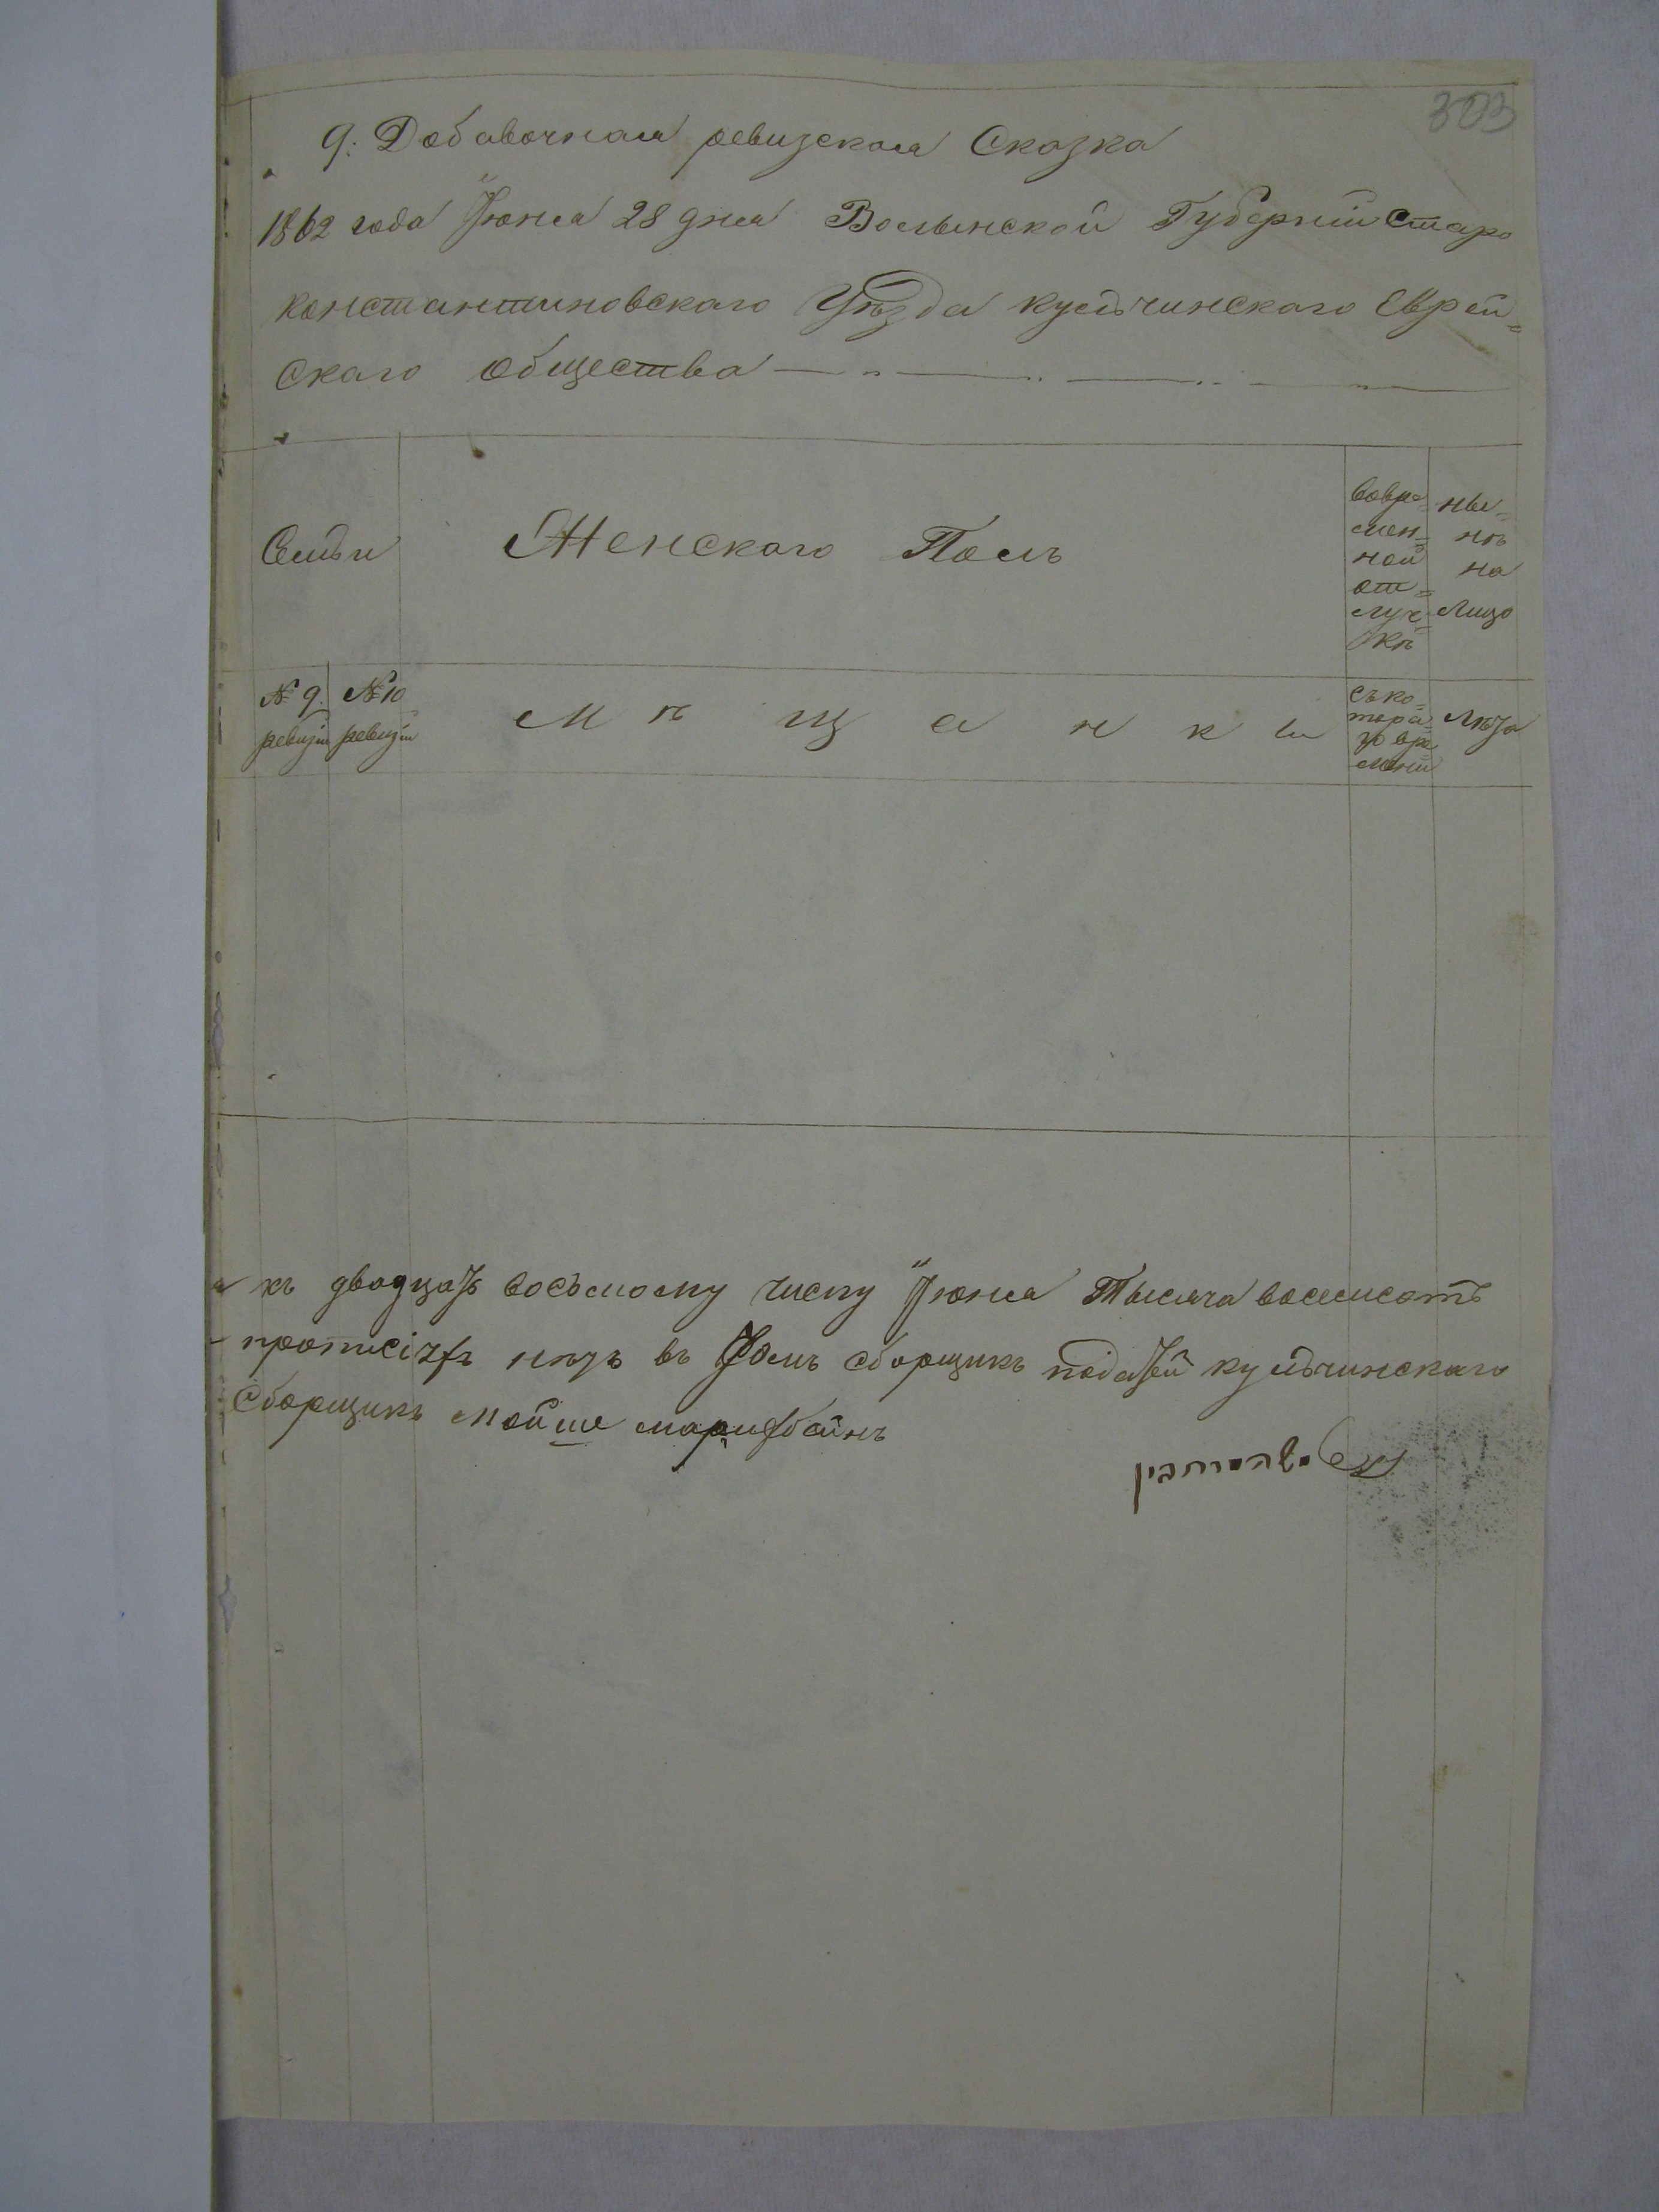 303
9. Добавочная ревизская Сказка
1862 года Іюня 28 дня Волынской Губерніи Старо
константиновскаго Уѣзда кульчинскаго Еврей=
скаго общества
Семьи
Женскаго Полъ
Во вре=
мен=
ной
от=
луч=
кѣ
ны=
нѣ
на
Лицо
№ 9. ревизіи
№ 10 ревизіи
М ѣ щ а н к и
съ ко=
тора=
го вре
мени
Лѣта
къ двадцать восьмому числу Іюня Тысяча восемсотъ
нѣтъ въ томъ сборщикъ податей кульчинскаго
Сборщикъ Мойше